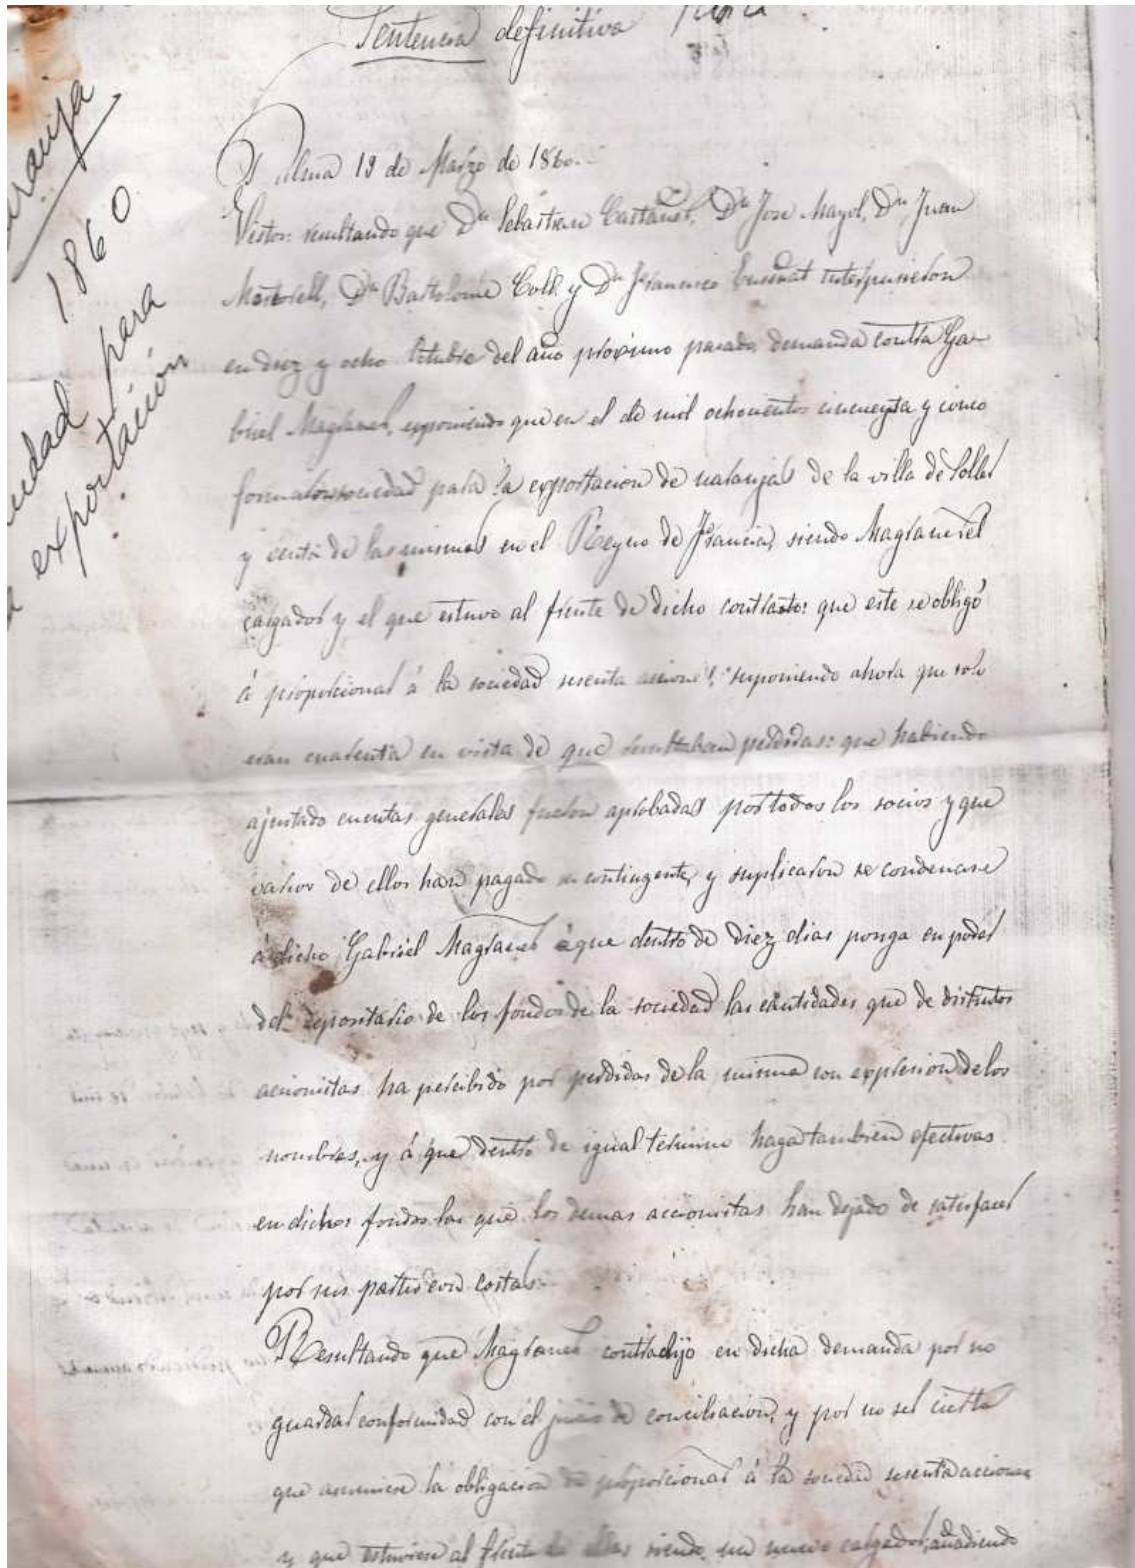 Sentencia definitiva
Naranja
1860
Sociedad para
la exportación
Palma 19 de Marzo de 1860.
Vistos: resultando que Dn Sebastian Castañer, Dn Jose Mayol, Dn Juan
Martorell, Dn Bartolomé Coll y Dn Francisco interpusieron
en diez y ocho Octubre del año próximo pasado, demanda contra Ga-
briel Magraner, exponiendo que en el de mil ochocientos cincuenta y cinco
formaron sociedad para la exportacion de naranjas de la villa de Soller
y venta de las mismas en el Reyno de Francia, siendo Magraner el
cargador y el que estuvo al frente de dicho contrato: que este se obligó
á proporcionar á la sociedad sesenta acciones, suponiendo ahora que solo
eran cuarenta en vista de que resultaban perdidas: que habiendo
ajustado cuentas generales fueron aprobadas por todos los socios y que
varios de ellos han pagado su contingente, y suplicaron se condenase
á dicho Gabriel Magraner á que dentro de diez dias ponga en poder
del depositario de los fondos de la sociedad las cantidades que de distintos
accionistas ha percibido por perdidas de la misma con expresion de los
nombres, y á que dentro de igual termino haga tambien efectivas
en dichos fondos las que los demas accionistas han dejado de satisfacer
por sus partes con costas.
Resultando que Magraner contradijo en dicha demanda por no
guardar conformidad con el juicio de conciliacion, y por no ser cierto
que asumiese la obligacion de proporcionar á la sociedad sesenta acciones
y que estuviese al frente de ellas siendo un mero cargador, añadiendo